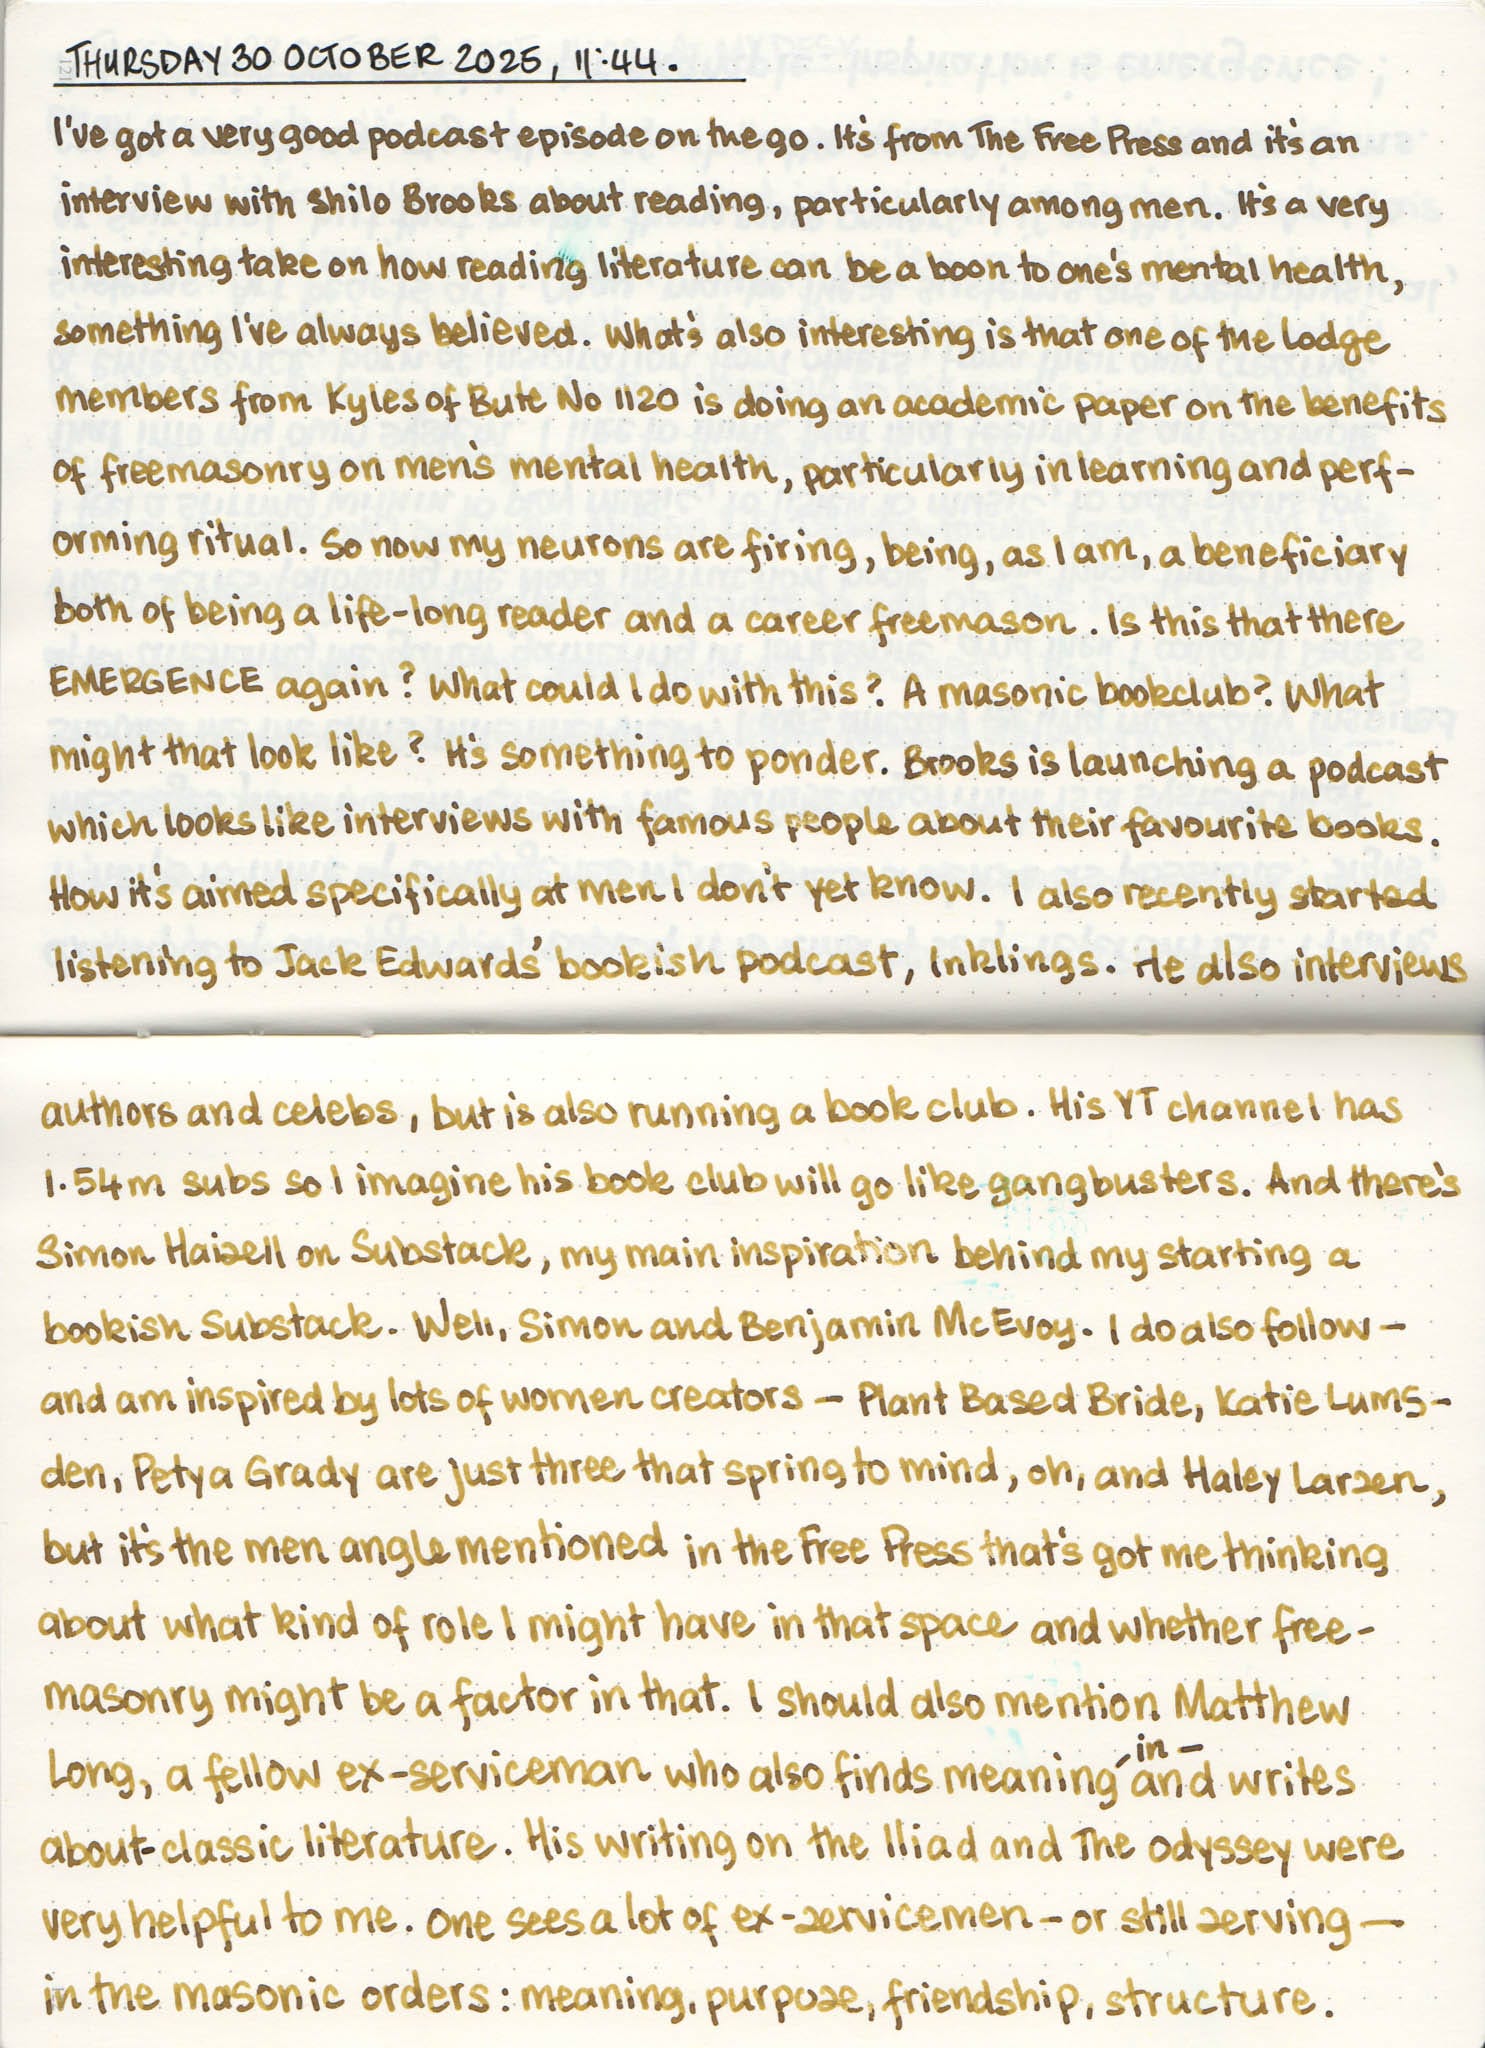 THURSDAY 30 OCTOBER 2025, 11:44.
I've got a very good podcast episode on the go. It's from The Free Press and it's an
interview with Shilo Brooks about reading, particularly among men. It's a very
interesting take on how reading literature can be a boon to one's mental health,
something I've always believed. What's also interesting is that one of the lodge
members from Kyles of Bute No 1120 is doing an academic paper on the benefits
of freemasonry on men's mental health, particularly in learning and perf-
orming ritual. So now my neurons are firing, being, as I am, a beneficiary
both of being a life-long reader and a career freemason. Is this that there
EMERGENCE again? What could I do with this? A masonic bookclub? What
might that look like? It's something to ponder. Brooks is launching a podcast
which looks like interviews with famous people about their favourite books.
How it's aimed specifically at men I don't yet know. I also recently started
listening to Jack Edwards' bookish podcast, Inklings. He also interviews
authors and celebs, but is also running a book club. His YT channel has
1.54m subs so I imagine his book club will go like gangbusters. And there's
Simon Haisell on Substack, my main inspiration behind my starting a
bookish Substack. Well, Simon and Benjamin McEvoy. I do also follow –
and am inspired by lots of women creators – Plant Based Bride, Katie Lums-
den, Petya Grady are just three that spring to mind, oh, and Haley Larsen,
but it's the men angle mentioned in the Free Press that's got me thinking
about what kind of role I might have in that space and whether free-
masonry might be a factor in that. I should also mention Matthew
Long, a fellow ex-serviceman who also finds meaning – in – and writes
about – classic literature. His writing on the Iliad and The Odyssey were
very helpful to me. One sees a lot of ex-servicemen – or still serving –
in the masonic orders: meaning, purpose, friendship, structure.